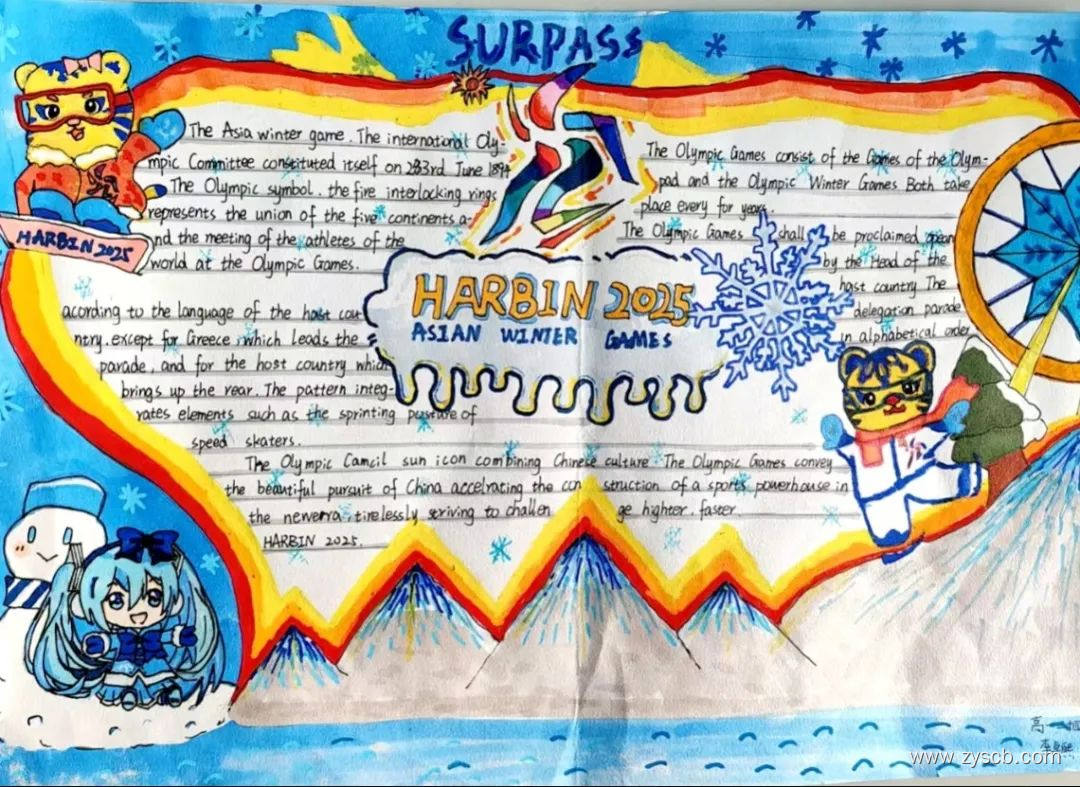 SURPASS
The Asia winter game. The international Oly-
mpic Committee constituted itself on rd June 1894
The Olympic symbol, the five interlocking rings
represents the union of the five continents a-
nd the meeting of the athletes of the
world at the Olympic Games.
HARBIN 2025
acording to the language of the host cou
ntry. except for Greece which leads the
parade, and for the host country which
brings up the rear. The pattern integ-
rates elements such as the sprinting posture of
speed skaters.
HARBIN 2025
ASIAN WINTER GAMES
The Olympic Games consist of the Games of the Olym-
pad and the Olympic Winter Games Both take
place every for years.
The Olympic Games shall be proclaimed open
by the Head of the
host country The
delegation parade
in alphabetical order
The Olympic Camcil sun icon combining Chinese culture. The Olympic Games convey
the beautiful pursuit of China accelrating the con struction of a sports powerhouse in
the newerra, tirelessly striving to challen ge highter. faster
HARBIN 2025.
高一
www.zyscb.com